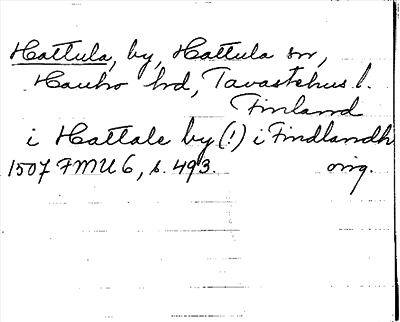 Hattula, by, Hattula sn,
Hauho hd, Tavastehus l.
Finland
i Hattale by (!) i Findlandh
1507 FMU 6, s. 493. orig.